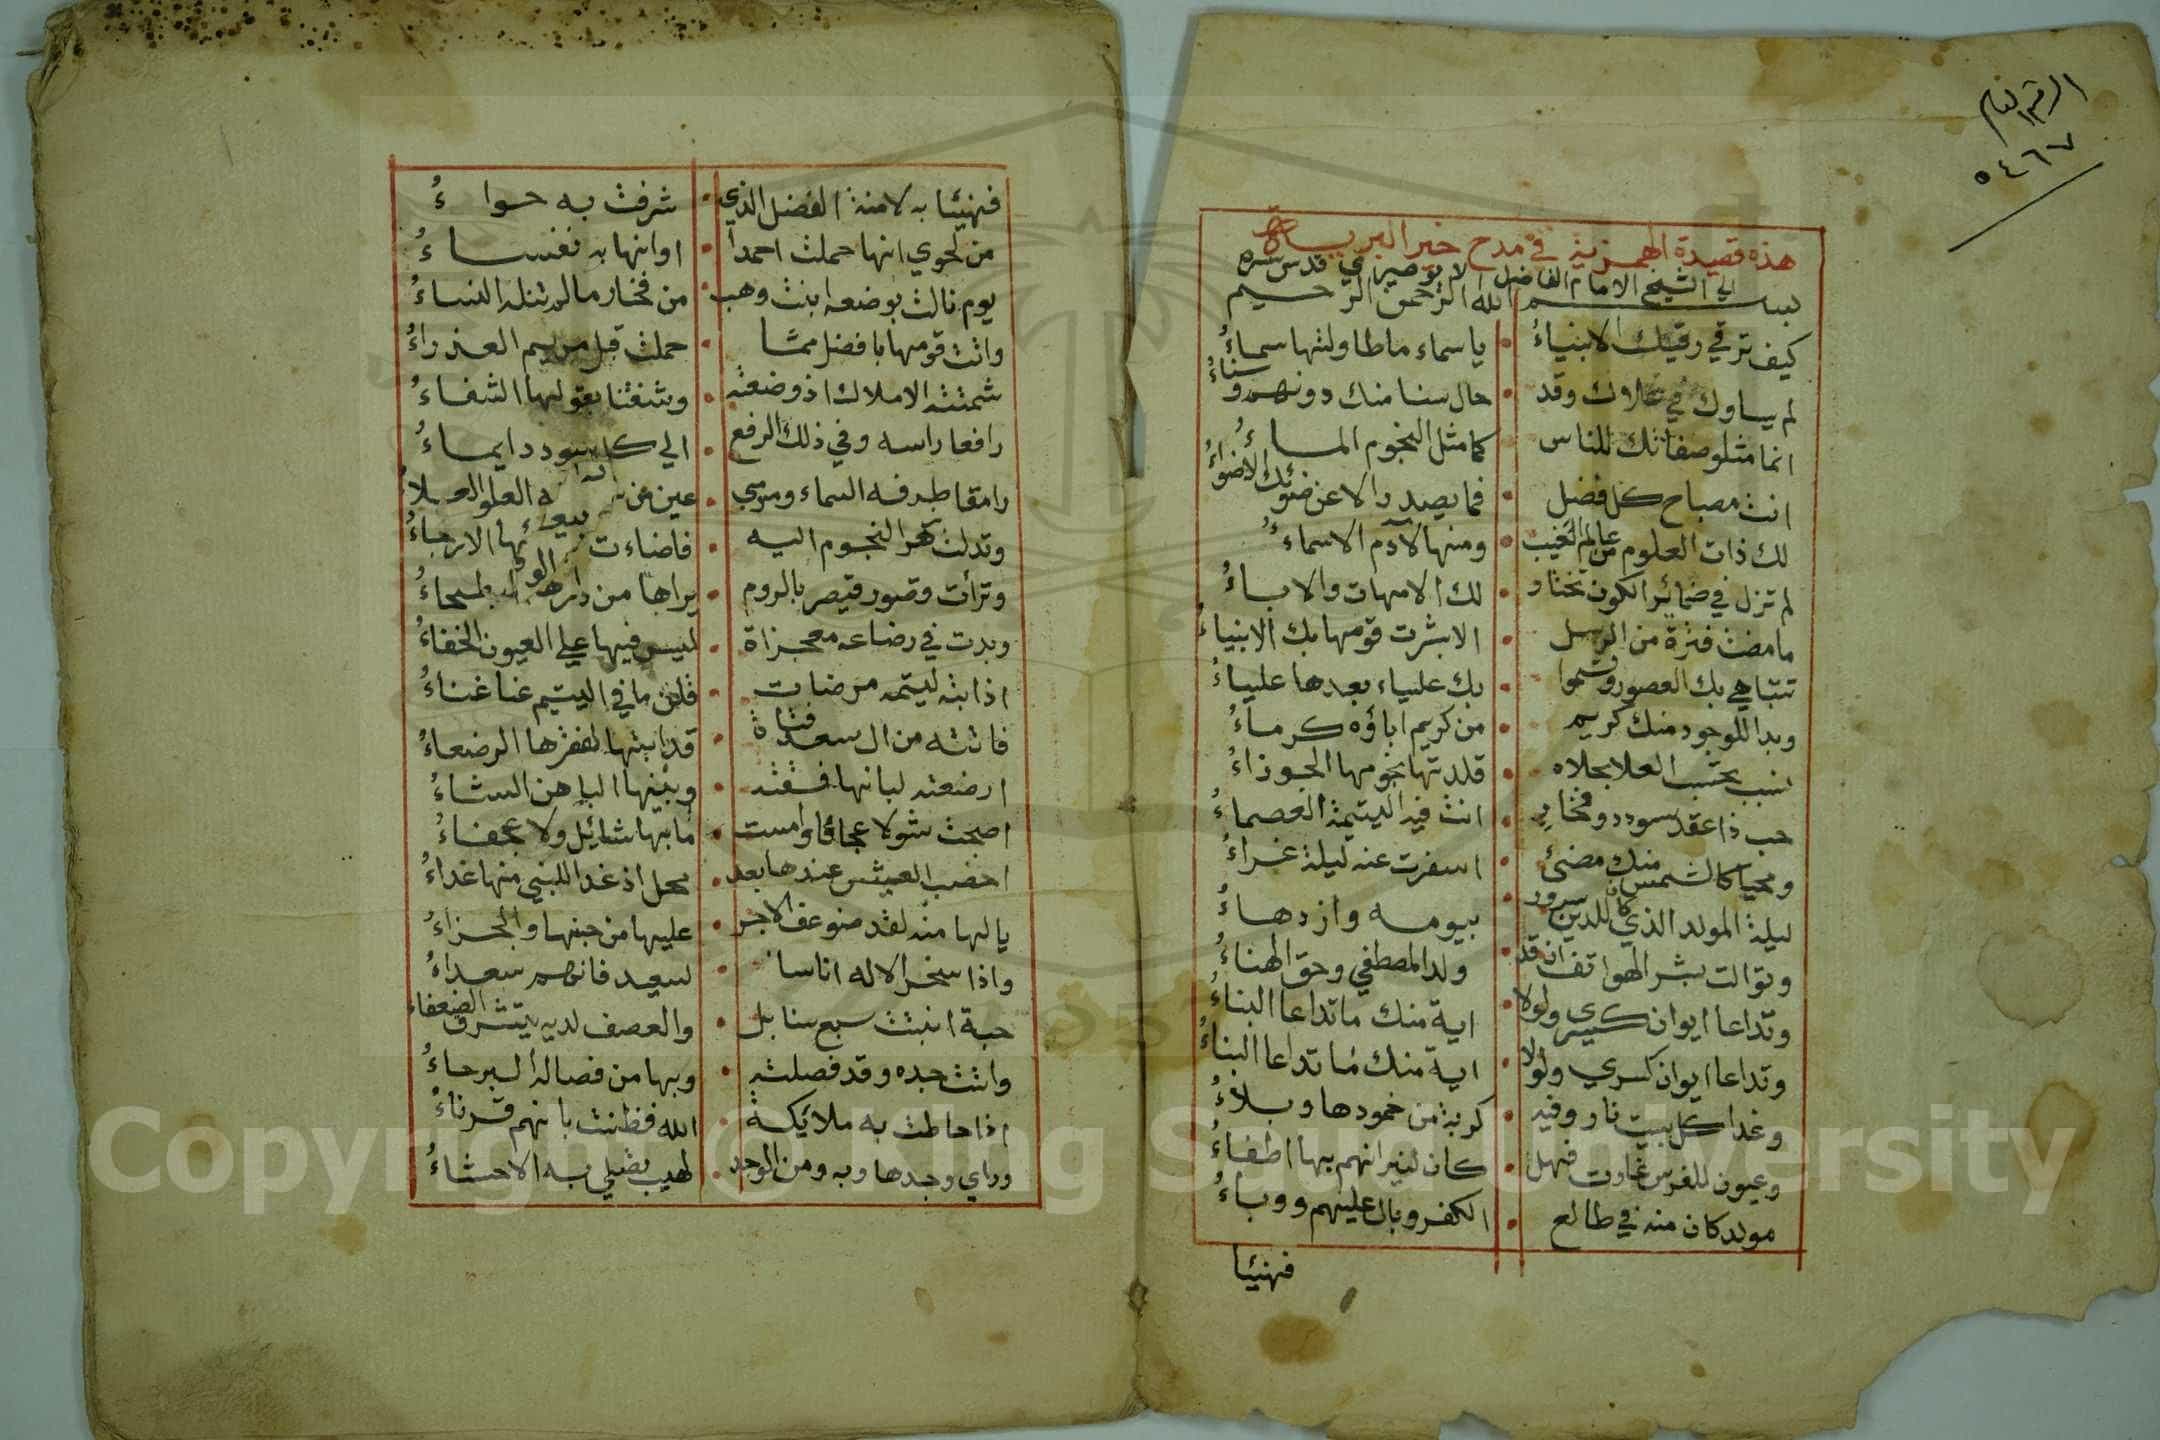 الرقم العام
٥٤٦٧
هذه قصيدة الهمزية في مدح خير البرية
الي الشيخ الامام الفاضل لابوصيراي قدس سره
بسم الله الرحمن الرحيم
كيف ترقي رقيك الابنياءُ يا سماء ما طاولتها سماءُ
لم يساوك في علاوك وقد حال سنا منك دونهم وسناءُ
انما مثلو صفاتك للناس كما مثل النجوم الماءُ
انت مصباح كل فضل فما يصدر الا عن ضوئك الاضواءُ
لك ذات العلوم من عالم الغيب ومنها لآدم الاسماءُ
لم تزل في ضمائر الكون تختار لك الامهات والاباءُ
ما مضت فترة من الرسل الا بشرت قومها بك الابنياءُ
تتباهي بك العصور وتسموا بك علياء بعدها علياءُ
وبدا للوجود منك كريم من كريم اباؤه كرماءُ
نسب تحتسب العلا بحلاه قلدتها نجومها الجوزاءُ
حب ذا عقد سودد وفخار انت فيه اليتيمة العصماءُ
ومحيا كالشمس منك مضئ اسفرت عنه ليلة غراءُ
ليلة المولد الذي كان للدين سرور بيومه وازدهاءُ
وتوالت بشر الهواتف ان قد ولد المصطفي وحق الهناءُ
وتداعا ايوان كسري ولولا اية منك ما تداعا البناءُ
وتداعا ايوان كسري ولولا اية منك ما تداعا البناءُ
وغدا كل بيت نار وفيه كربة من خمودها وبلاءُ
وعيون للفرس غارت فهل كان لنيرانهم بها اطفاءُ
مولد كان منه في طالع الكفر وبال عليهم ووباءُ
فهنيئا
فهنيئا به لامنة الفضل الذي شرفت به حواءُ
من لحوي انها حملت احمدا او انها به نفساءُ
يوم نالت بوضعه ابنت وهب من فخار مالم تنله النساءُ
واتت قومها بافضل مما حملت قبل مريم العذراءُ
شمتته الاملاك اذ وضعته وشفتنا بقولها الشفاءُ
رافعا راسه وفي ذلك الرفع الي كل سودد ايماءُ
رامقا طرفه السماء ومرمي عين من العلو العلاءُ
وتدلت زهر النجوم اليه فاضاءت الارجاءُ
وترآت وقصور قيصر بالروم يراها من داره البطحاءُ
وبدت في رضاعه معجزاة ليس فيها علي العيون الخفاءُ
اذ ابته ليتمه مرضات قلن ما في اليتيم عنا غناءُ
فاتته من ال سعد فتاة قد ابتها لفقرها الرضعاءُ
ارضعته لبانها فسقته وبنيها البانهن الشاءُ
اصبحت شولا عجافا وامست ما بها شائل ولا عجفاءُ
اخصب العيش عندها بعد محل اذ غدا للنبي منها غداءُ
يا لها منة لقد ضوعف الاجر عليها من جنسها والجزاءُ
واذا سخر الاله اناسا لسعيد فانهم سعداءُ
حبة انبتت سبع سنابل والعصف لديه يتشرف الضعفاء
واتت جده وقد فصلته وبها من فصاله البرحاءُ
اذ احاطت به ملائكة الله فظنت بانهم قرناءُ
وراي وجدها وبه ومن الوجد لهيب تصلي به الاحشاءُ
Copyright © King Saud University